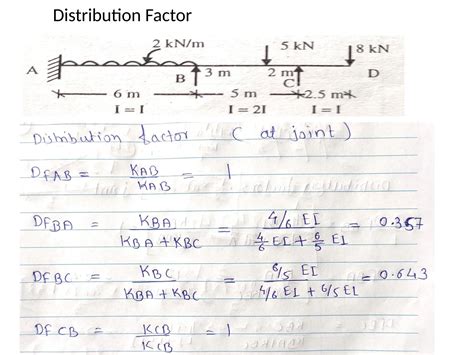 Distribution Factor
2 kN/m
5 kN
8 kN
A
B
3 m
2 m
C
D
6 m
5 m
2.5 m
I = I
I = 2I
I = I
Distribution factor ( at joint )
DFAB = KAB / KAB = 1
DFBA = KBA / KBA + KBC = 4/6 EI / 4/6 EI + 6/5 EI = 0.357
DFBC = KBC / KBA + KBC = 6/5 EI / 4/6 EI + 6/5 EI = 0.643
DFCB = KCB / KCB = 1